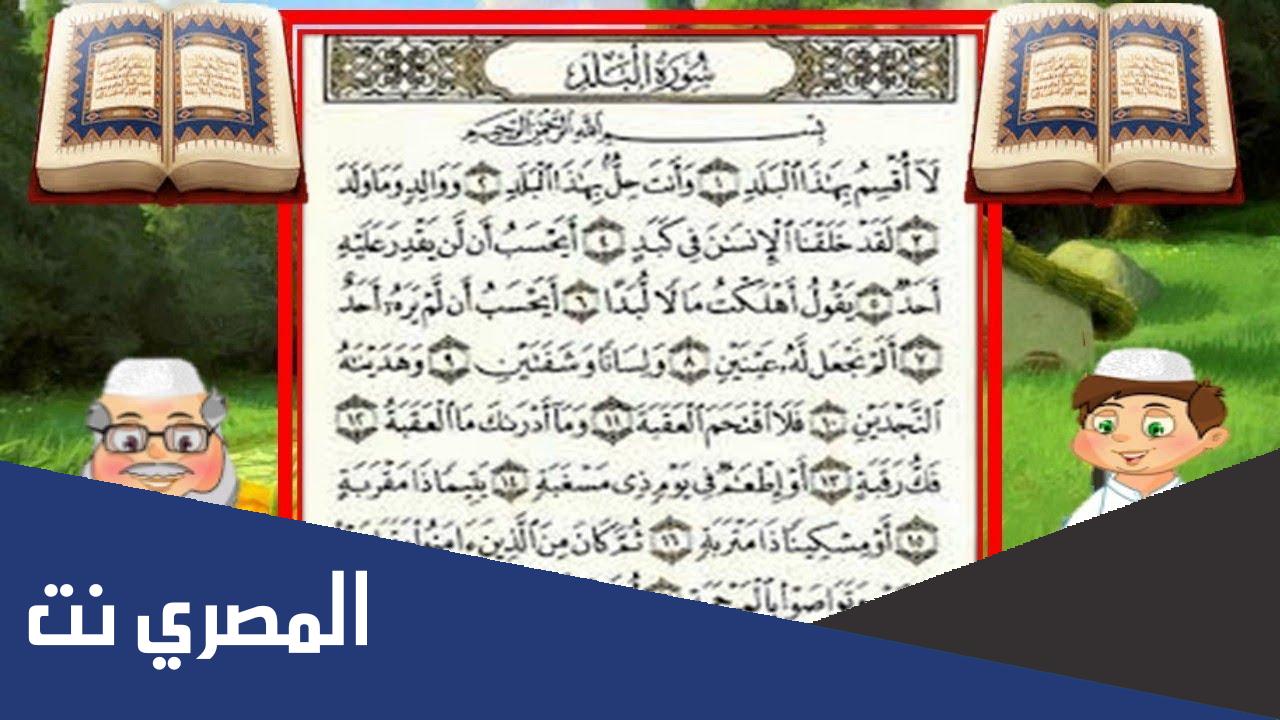 سُورَةُ الْبَلَدِ
بِسْمِ اللَّهِ الرَّحْمَٰنِ الرَّحِيمِ
لَا أُقْسِمُ بِهَٰذَا الْبَلَدِ ١ وَأَنْتَ حِلٌّ بِهَٰذَا الْبَلَدِ ٢ وَوَالِدٍ وَمَا وَلَدَ
٣ لَقَدْ خَلَقْنَا الْإِنسَٰنَ فِي كَبَدٍ ٤ أَيَحْسَبُ أَن لَّن يَقْدِرَ عَلَيْهِ
أَحَدٌ ٥ يَقُولُ أَهْلَكْتُ مَالًا لُّبَدًا ٦ أَيَحْسَبُ أَن لَّمْ يَرَهُۥ أَحَدٌ
٧ أَلَمْ نَجْعَل لَّهُۥ عَيْنَيْنِ ٨ وَلِسَانًا وَشَفَتَيْنِ ٩ وَهَدَيْنَٰهُ
النَّجْدَيْنِ ١٠ فَلَا اقْتَحَمَ الْعَقَبَةَ ١١ وَمَا أَدْرَىٰكَ مَا الْعَقَبَةُ ١٢
فَكُّ رَقَبَةٍ ١٣ أَوْ إِطْعَٰمٌ فِي يَوْمٍ ذِي مَسْغَبَةٍ ١٤ يَتِيمًا ذَا مَقْرَبَةٍ
١٥ أَوْ مِسْكِينًا ذَا مَتْرَبَةٍ ١٦ ثُمَّ كَانَ مِنَ الَّذِينَ ءَامَنُوا
وَتَوَاصَوْا بِالْمَرْحَمَةِ
المصري نت